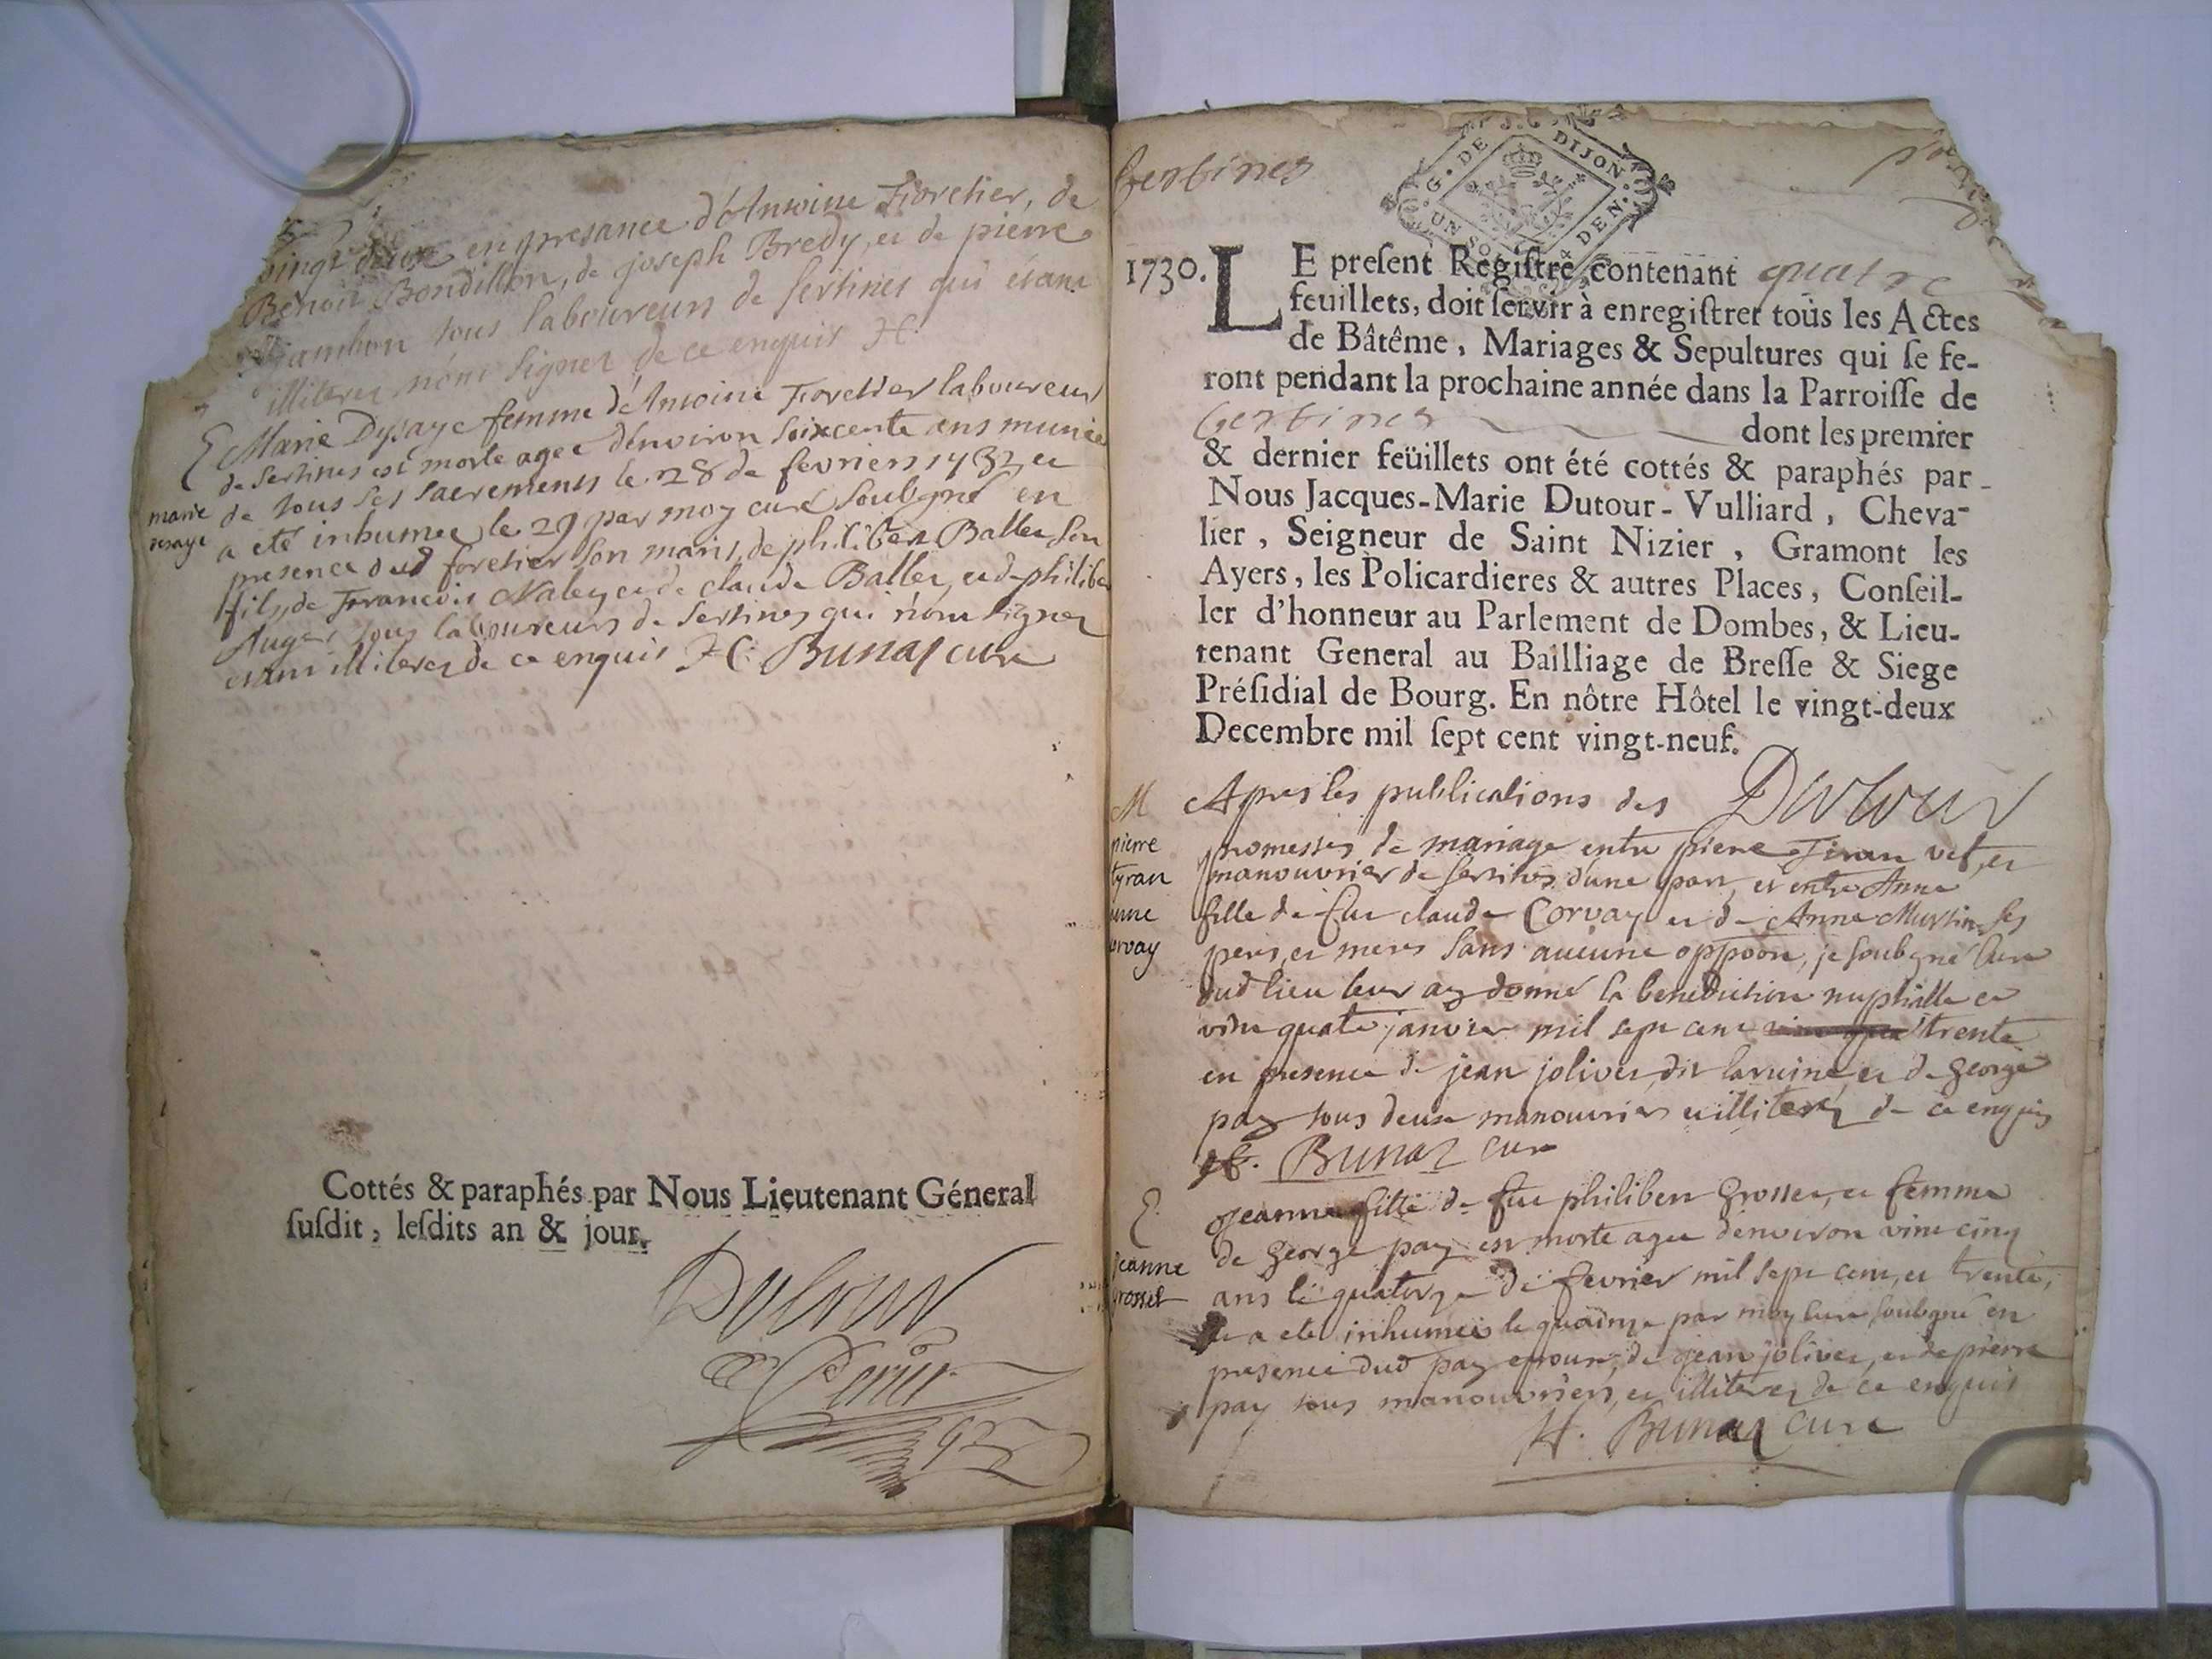 vingt deux en presance d'Antoine Foretier, de
Benoit Bondillon, de joseph Bredy, et de pierre
jambon tous laboureurs de sertines qui étant
illiteres n'ont signer de ce enquis H.
E Marie Dysaye femme d'Antoine Foretier laboureur
de sertines est morte agee d'environ soixcente ans munie
de tous ses sacrements le 28 de fevriers 1732 et
marie
resaye
a eté inhumee le 29 par moy curé soubgné en
presence dud foretier son maris, de philibert Ballet son
fils, de Francois Nalet et de claude Ballet, et de philiber
Auger tous laboureurs de sertines qui n'ont signer
etant illiteres de ce enquis H. Bunaz cure
Cottés & paraphés par Nous Lieutenant Géneral
ſuſdit, leſdits an & jour.
Dutour
Certines
G. DE DIJON
UN SOL DEN.
1730. LE preſent Regiſtre contenant quatre
feuillets, doit ſervir à enregiſtrer tous les Actes
de Bâtême, Mariages & Sepultures qui ſe fe-
ront pendant la prochaine année dans la Parroiſſe de
Certines dont les premier
& dernier feüillets ont été cottés & paraphés par
Nous Jacques-Marie Dutour-Vulliard, Cheva-
lier, Seigneur de Saint Nizier, Gramont les
Ayers, les Policardieres & autres Places, Conſeil-
ler d'honneur au Parlement de Dombes, & Lieu-
tenant General au Bailliage de Breſſe & Siege
Préſidial de Bourg. En nôtre Hôtel le vingt-deux
Decembre mil ſept cent vingt-neuf.
Dutour
M
pierre
tyran
anne
orvay
Apres les publications des
promesses de mariage entre piere Tiran vef, et
manouvrier de sertines d'une part, et entre Anne
fille de fue claude Corvay et de Anne Murtin ses
peres, et meres sans aucune oppoon, je soubgné Cure
dud lieu leur ay donné la benediction nuptialle ce
vint quatre janvier mil sept cent trente
en presence de jean jolivet, dit laruine et de george
pay tous deux manouvrier et illiterez de ce enquis
H. Bunaz cure
E
jeanne
grosset
Jeanne fille de fue philibert Grosset, et femme
de George pay est morte agee d'environ vint cinq
ans le quatorze de fevrier mil sept cent, et trente,
et a eté inhumee le quinze par moy cure soubgné en
presence dud pay epoux, de jean jolivet, et de pierre
pay tous manouvriers, et illiterez de ce enquis
H. Bunaz cure